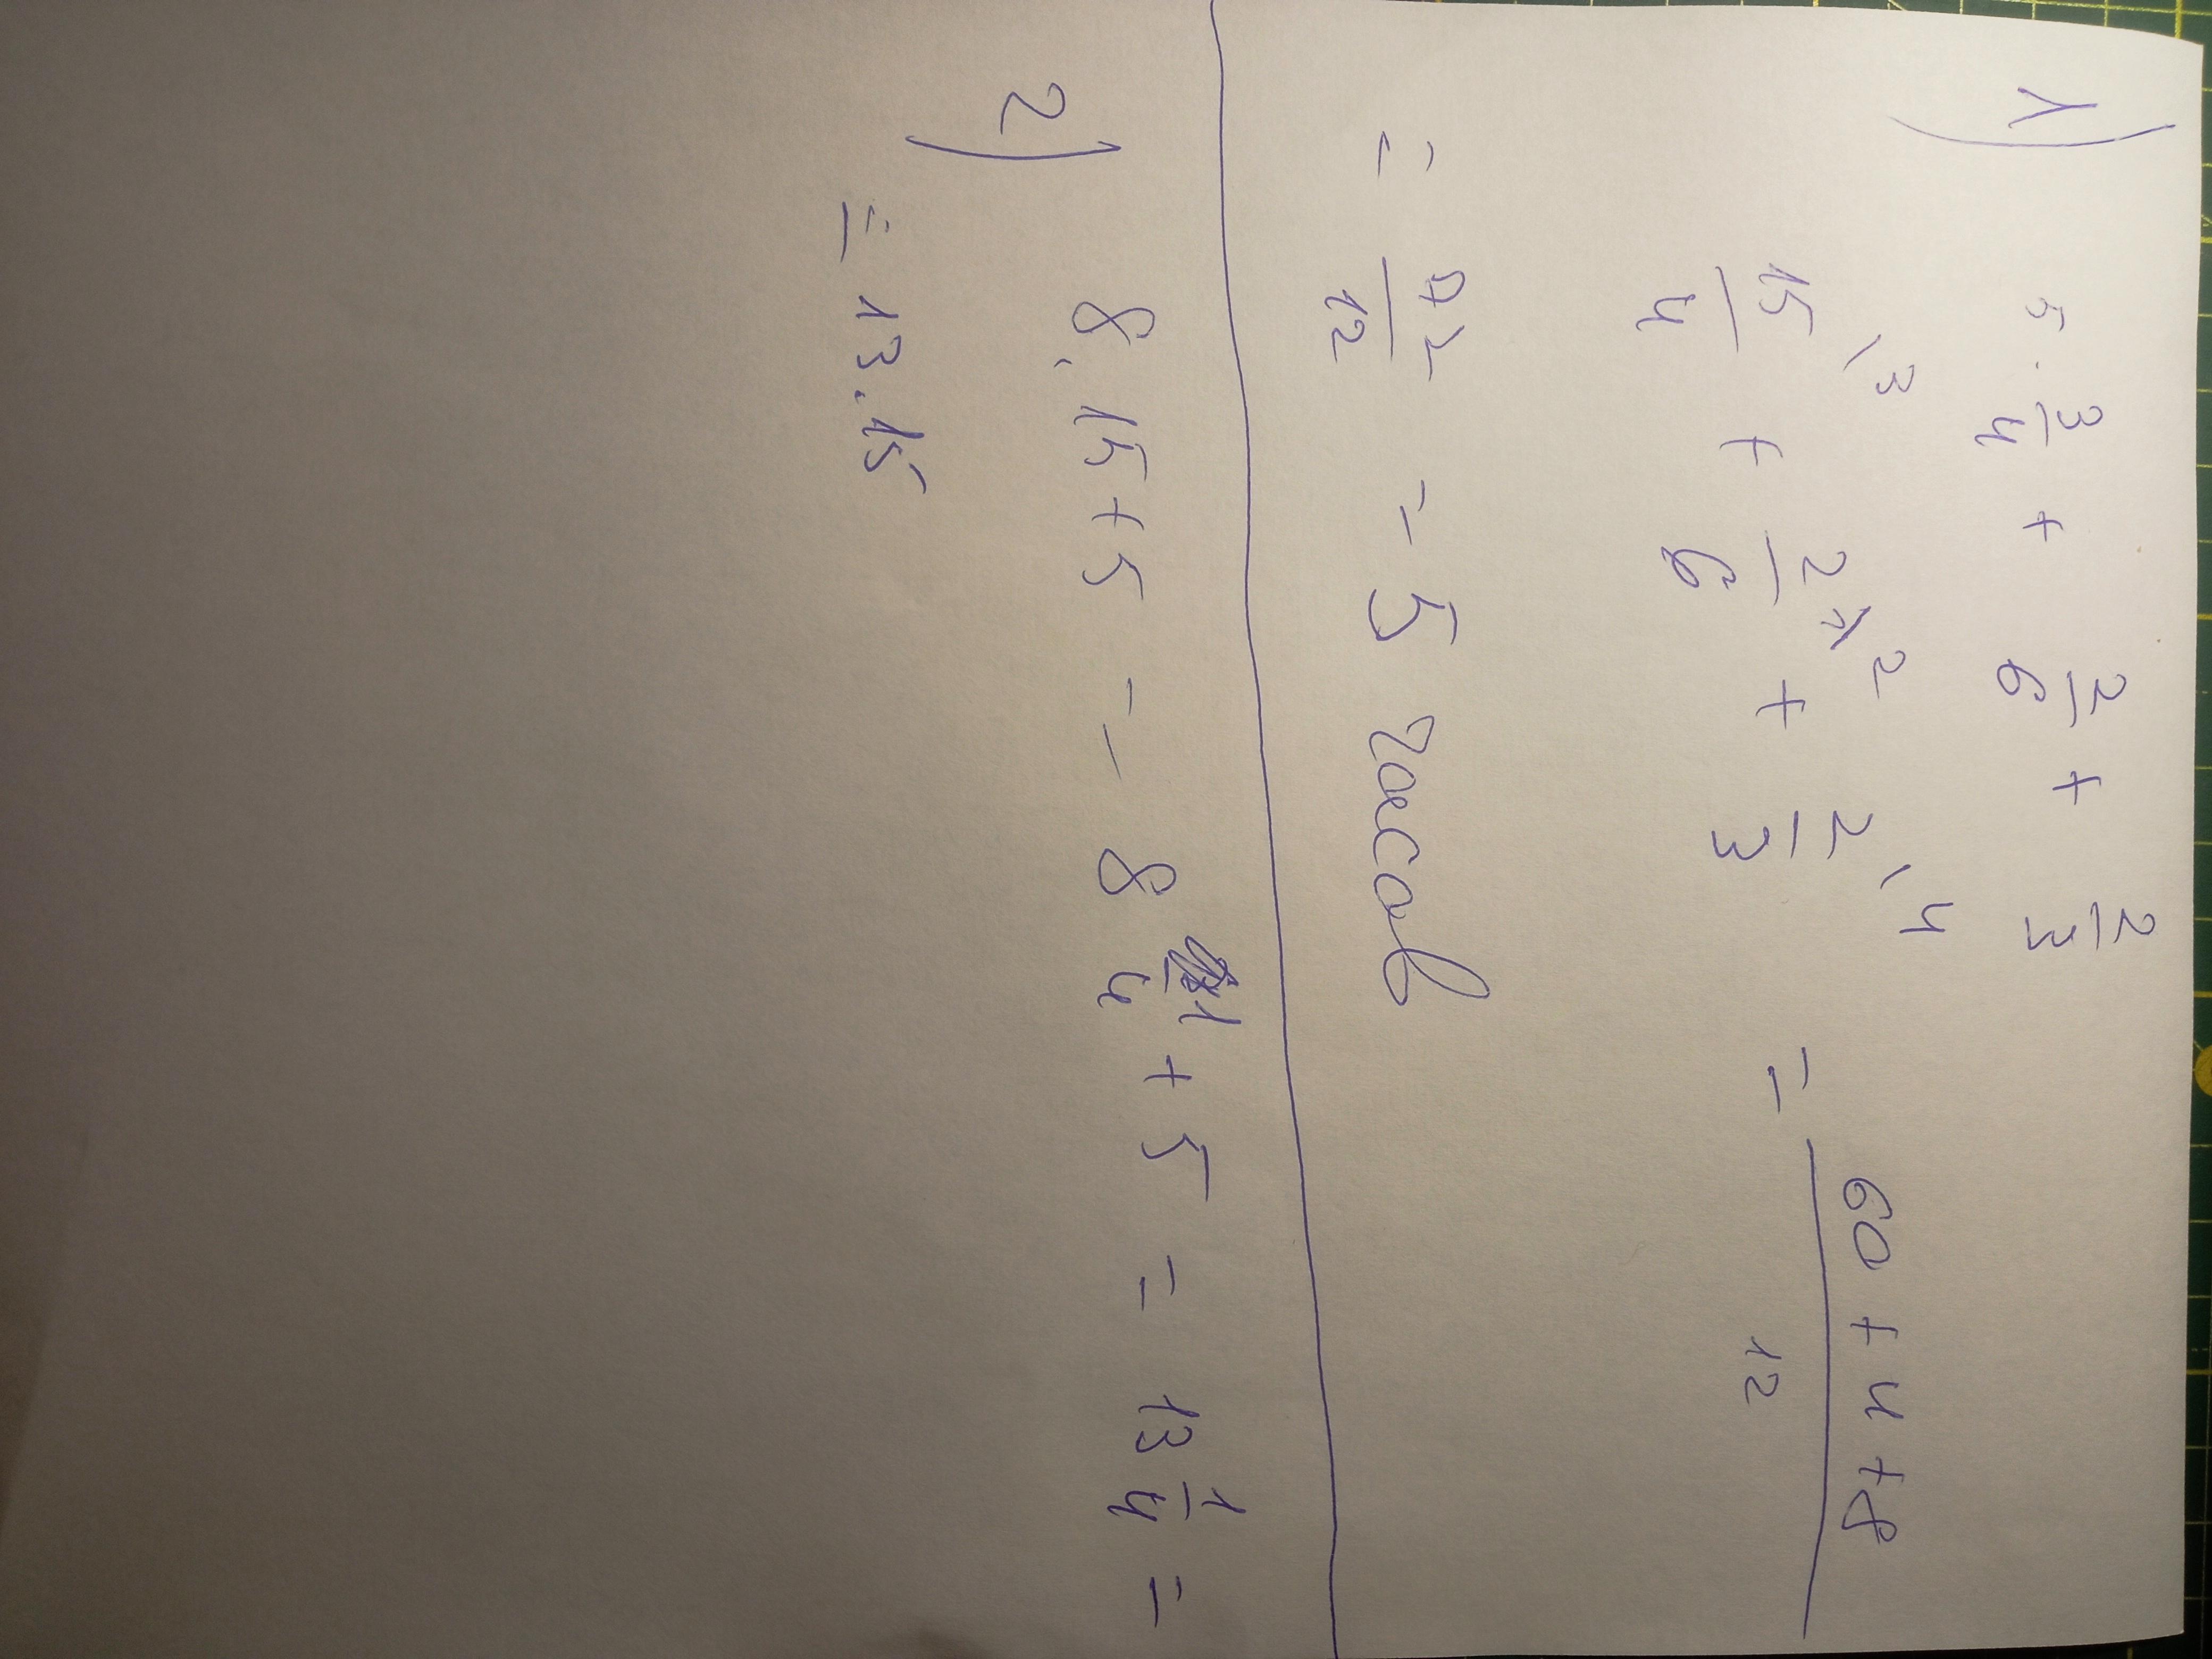 1) 5 · 3/4 + 2/6 + 2/3
15/4 \3 + 2/6 \2 + 2/3 \4 = (60 + 4 + 8)/12
= 72/12 = 5 часов
2) 8.15 + 5 = 8 1/4 + 5 = 13 1/4 =
= 13.15